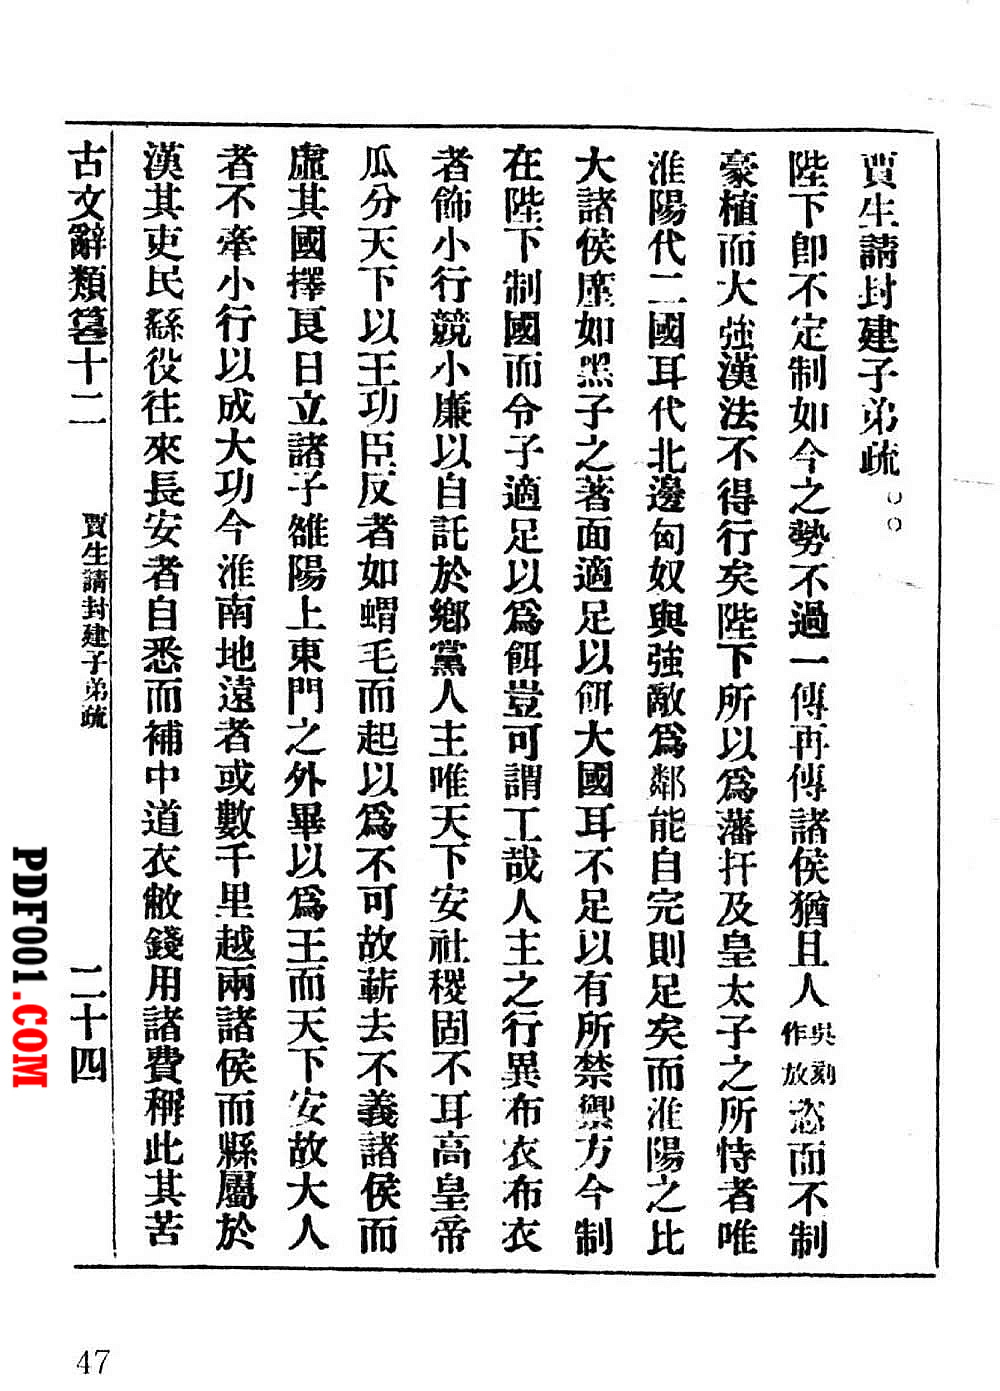 賈生請封建子弟疏○○
陛下卽不定制如今之勢不過一傳再傳諸侯猶且人吳刻作放恣而不制
豪植而大強漢法不得行矣陛下所以爲藩扞及皇太子之所恃者唯
淮陽代二國耳代北邊匈奴與強敵爲鄰能自完則足矣而淮陽之比
大諸侯廑如黑子之著面適足以餌大國耳不足以有所禁禦方今制
在陛下制國而令子適足以爲餌豈可謂工哉人主之行異布衣布衣
者飾小行競小廉以自託於鄉黨人主唯天下安社稷固不耳高皇帝
瓜分天下以王功臣反者如蝟毛而起以爲不可故蘄去不義諸侯而
虛其國擇良日立諸子雒陽上東門之外畢以爲王而天下安故大人
者不牽小行以成大功今淮南地遠者或數千里越兩諸侯而縣屬於
漢其吏民繇役往來長安者自悉而補中道衣敝錢用諸費稱此其苦
古文辭類篹十二 賈生請封建子弟疏 二十四
PDF001.COM
47